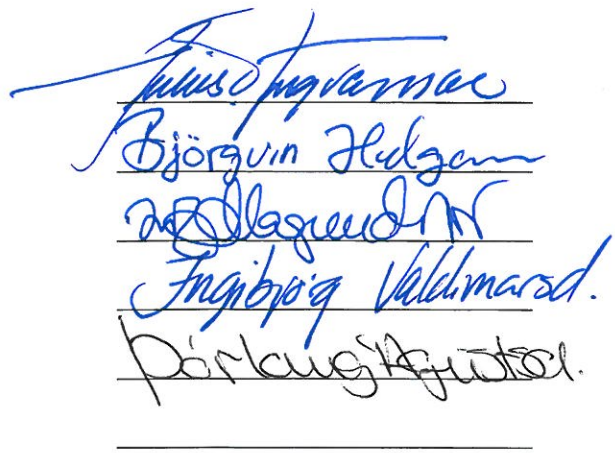 Júlíus Ingvarsson
Björgvin Helgason
Ingibjörg Valdimarsd.
Þórlaug Ágústsd.